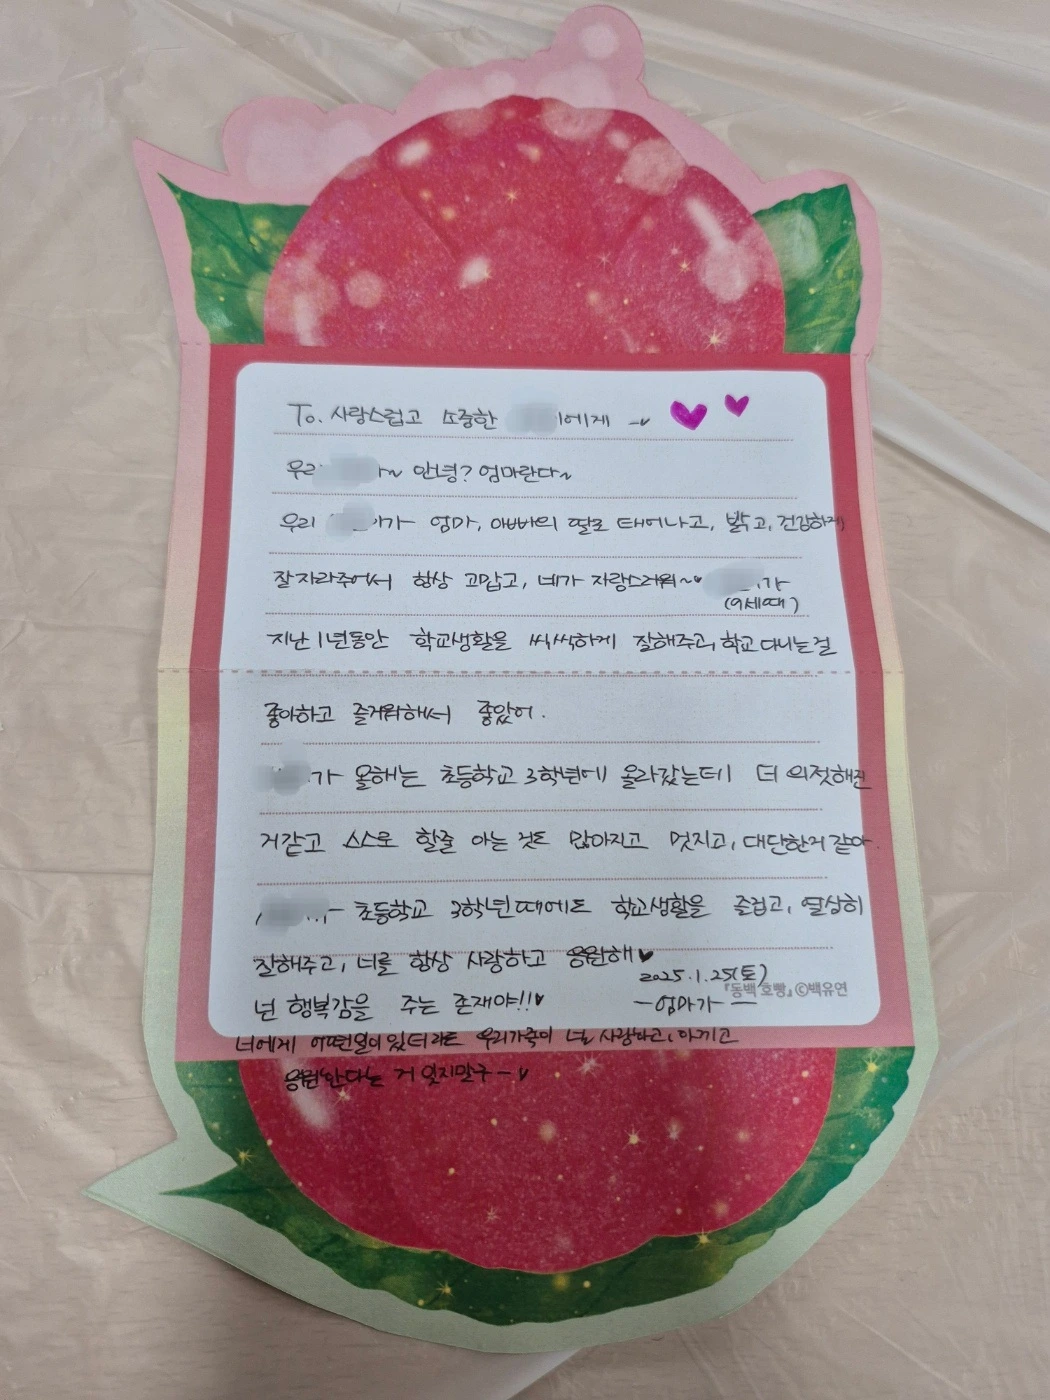 To. 사랑스럽고 소중한 에게 ~♥
우리 ~ 안녕? 엄마란다~
우리 가 엄마, 아빠의 딸로 태어나고, 밝고, 건강하게
잘자라주어서 항상 고맙고, 네가 자랑스러워~♥ 가
(9세때)
지난 1년동안 학교생활을 씩씩하게 잘해주고, 학교 다니는걸
좋아하고 즐거워해서 좋았어.
가 올해는 초등학교 3학년에 올라갔는데 더 의젓해진
거같고 스스로 할줄 아는 것도 많아지고 멋지고, 대단한거 같아.
초등학교 3학년때에도 학교생활을 즐겁고, 열심히
잘해주고, 너를 항상 사랑하고 응원해♥
2025.1.25(토)
『동백 호빵』 ©백유연
넌 행복감을 주는 존재야!!♥ -엄마가-
너에게 어떤일이 있더라도 우리가족이 널 사랑하고, 아끼고
응원한다는 거 잊지말구-♥